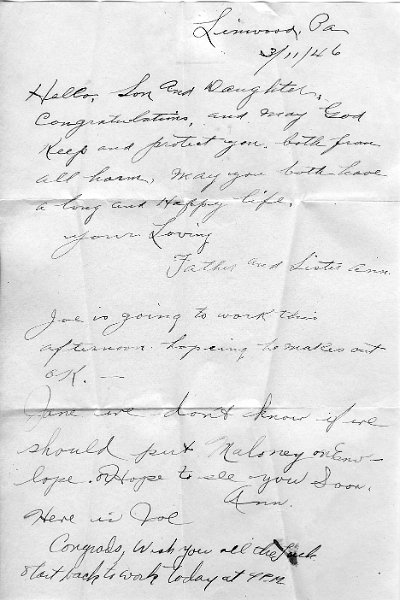 Linwood, Pa
3/11/46
Hello, Son and Daughter,
Congratulations, and may God
Keep and protect you both from
all harm, may you both have
a long and Happy life,
your Loving
Father and Sister Ann.
Joe is going to work this
afternoon. hopeing he makes out
OK. —
Jane we don't know if we
should put Maloney on Env-
lope. Hope to see you Soon.
Ann.
Here is Joe
Congrads, Wish you all the luck.
start back to work today at 4 P.M.